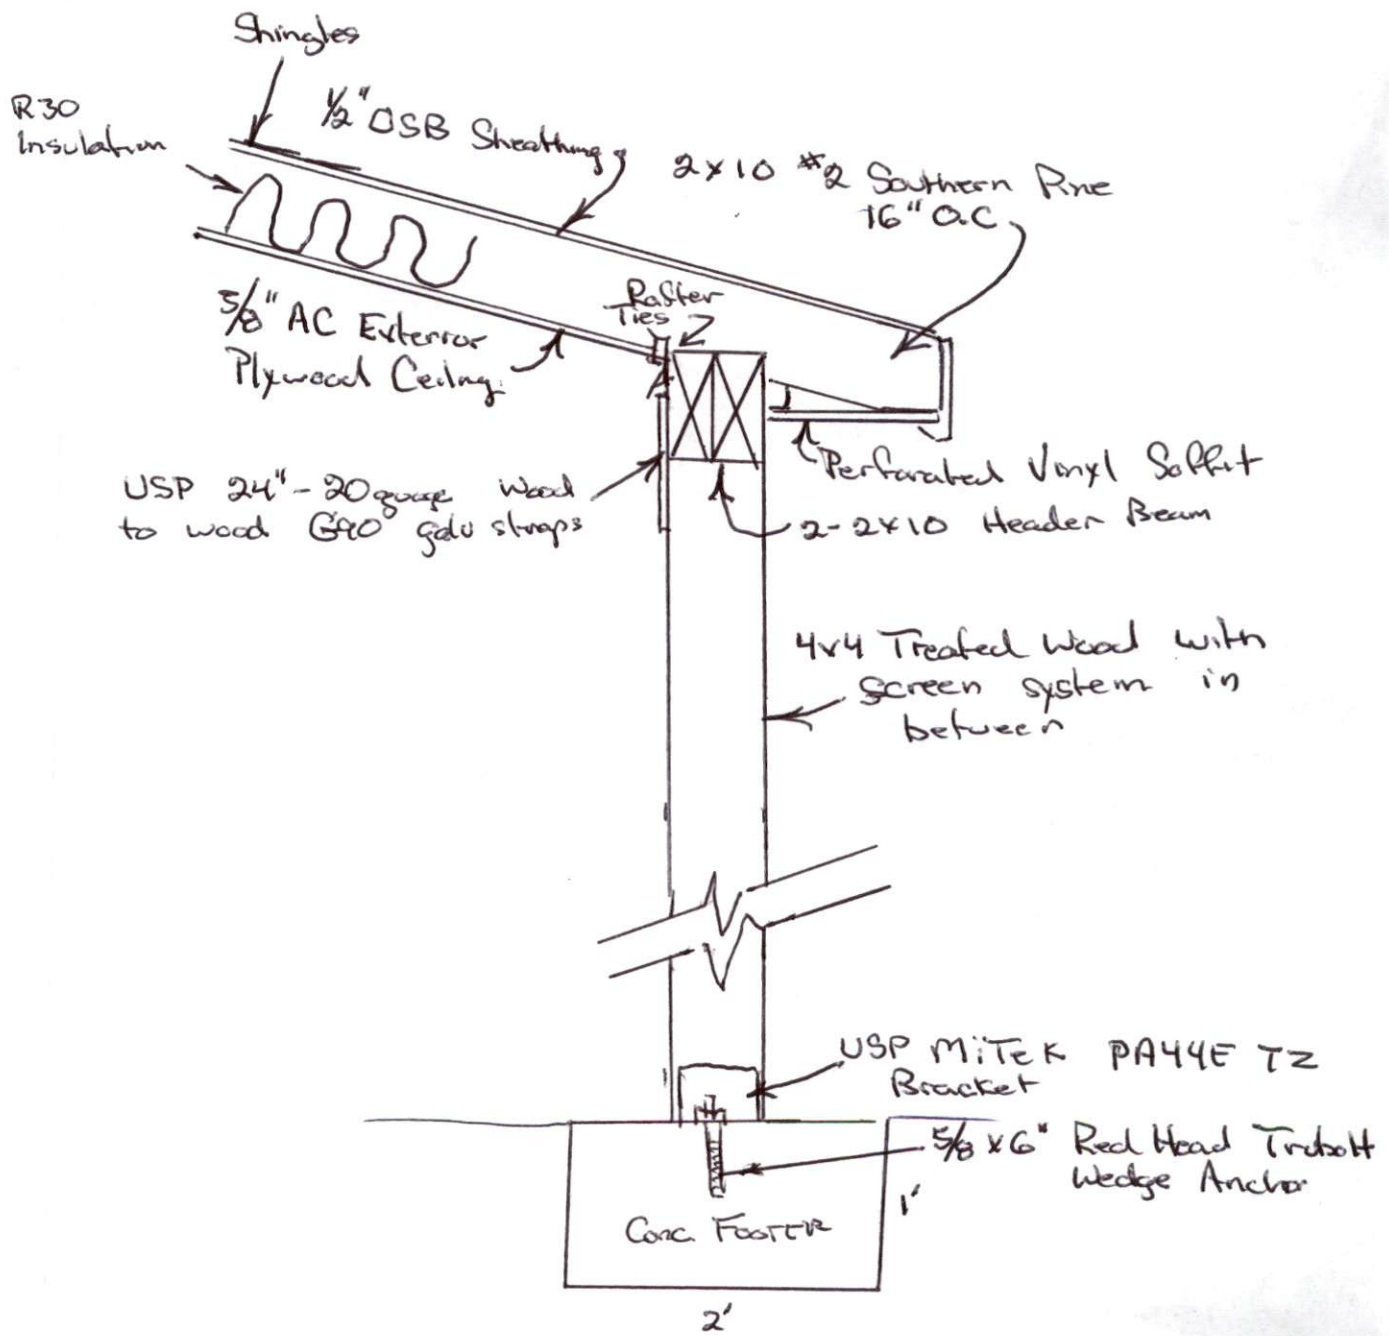 Shingles
R30
Insulation
1/2" OSB Sheathing
2x10 #2 Southern Pine
16" O.C
Rafter
Ties
5/8" AC Exterior
Plywood Ceiling
Perforated Vinyl Soffit
USP 24"-20 guage Wood
to wood G90 galv straps
2-2x10 Header Beam
4x4 Treated Wood with
screen system in
between
USP MiTeK PA44E TZ
Bracket
5/8 x 6" Red Head Trubolt
Wedge Anchor
1'
Conc. Footer
2'